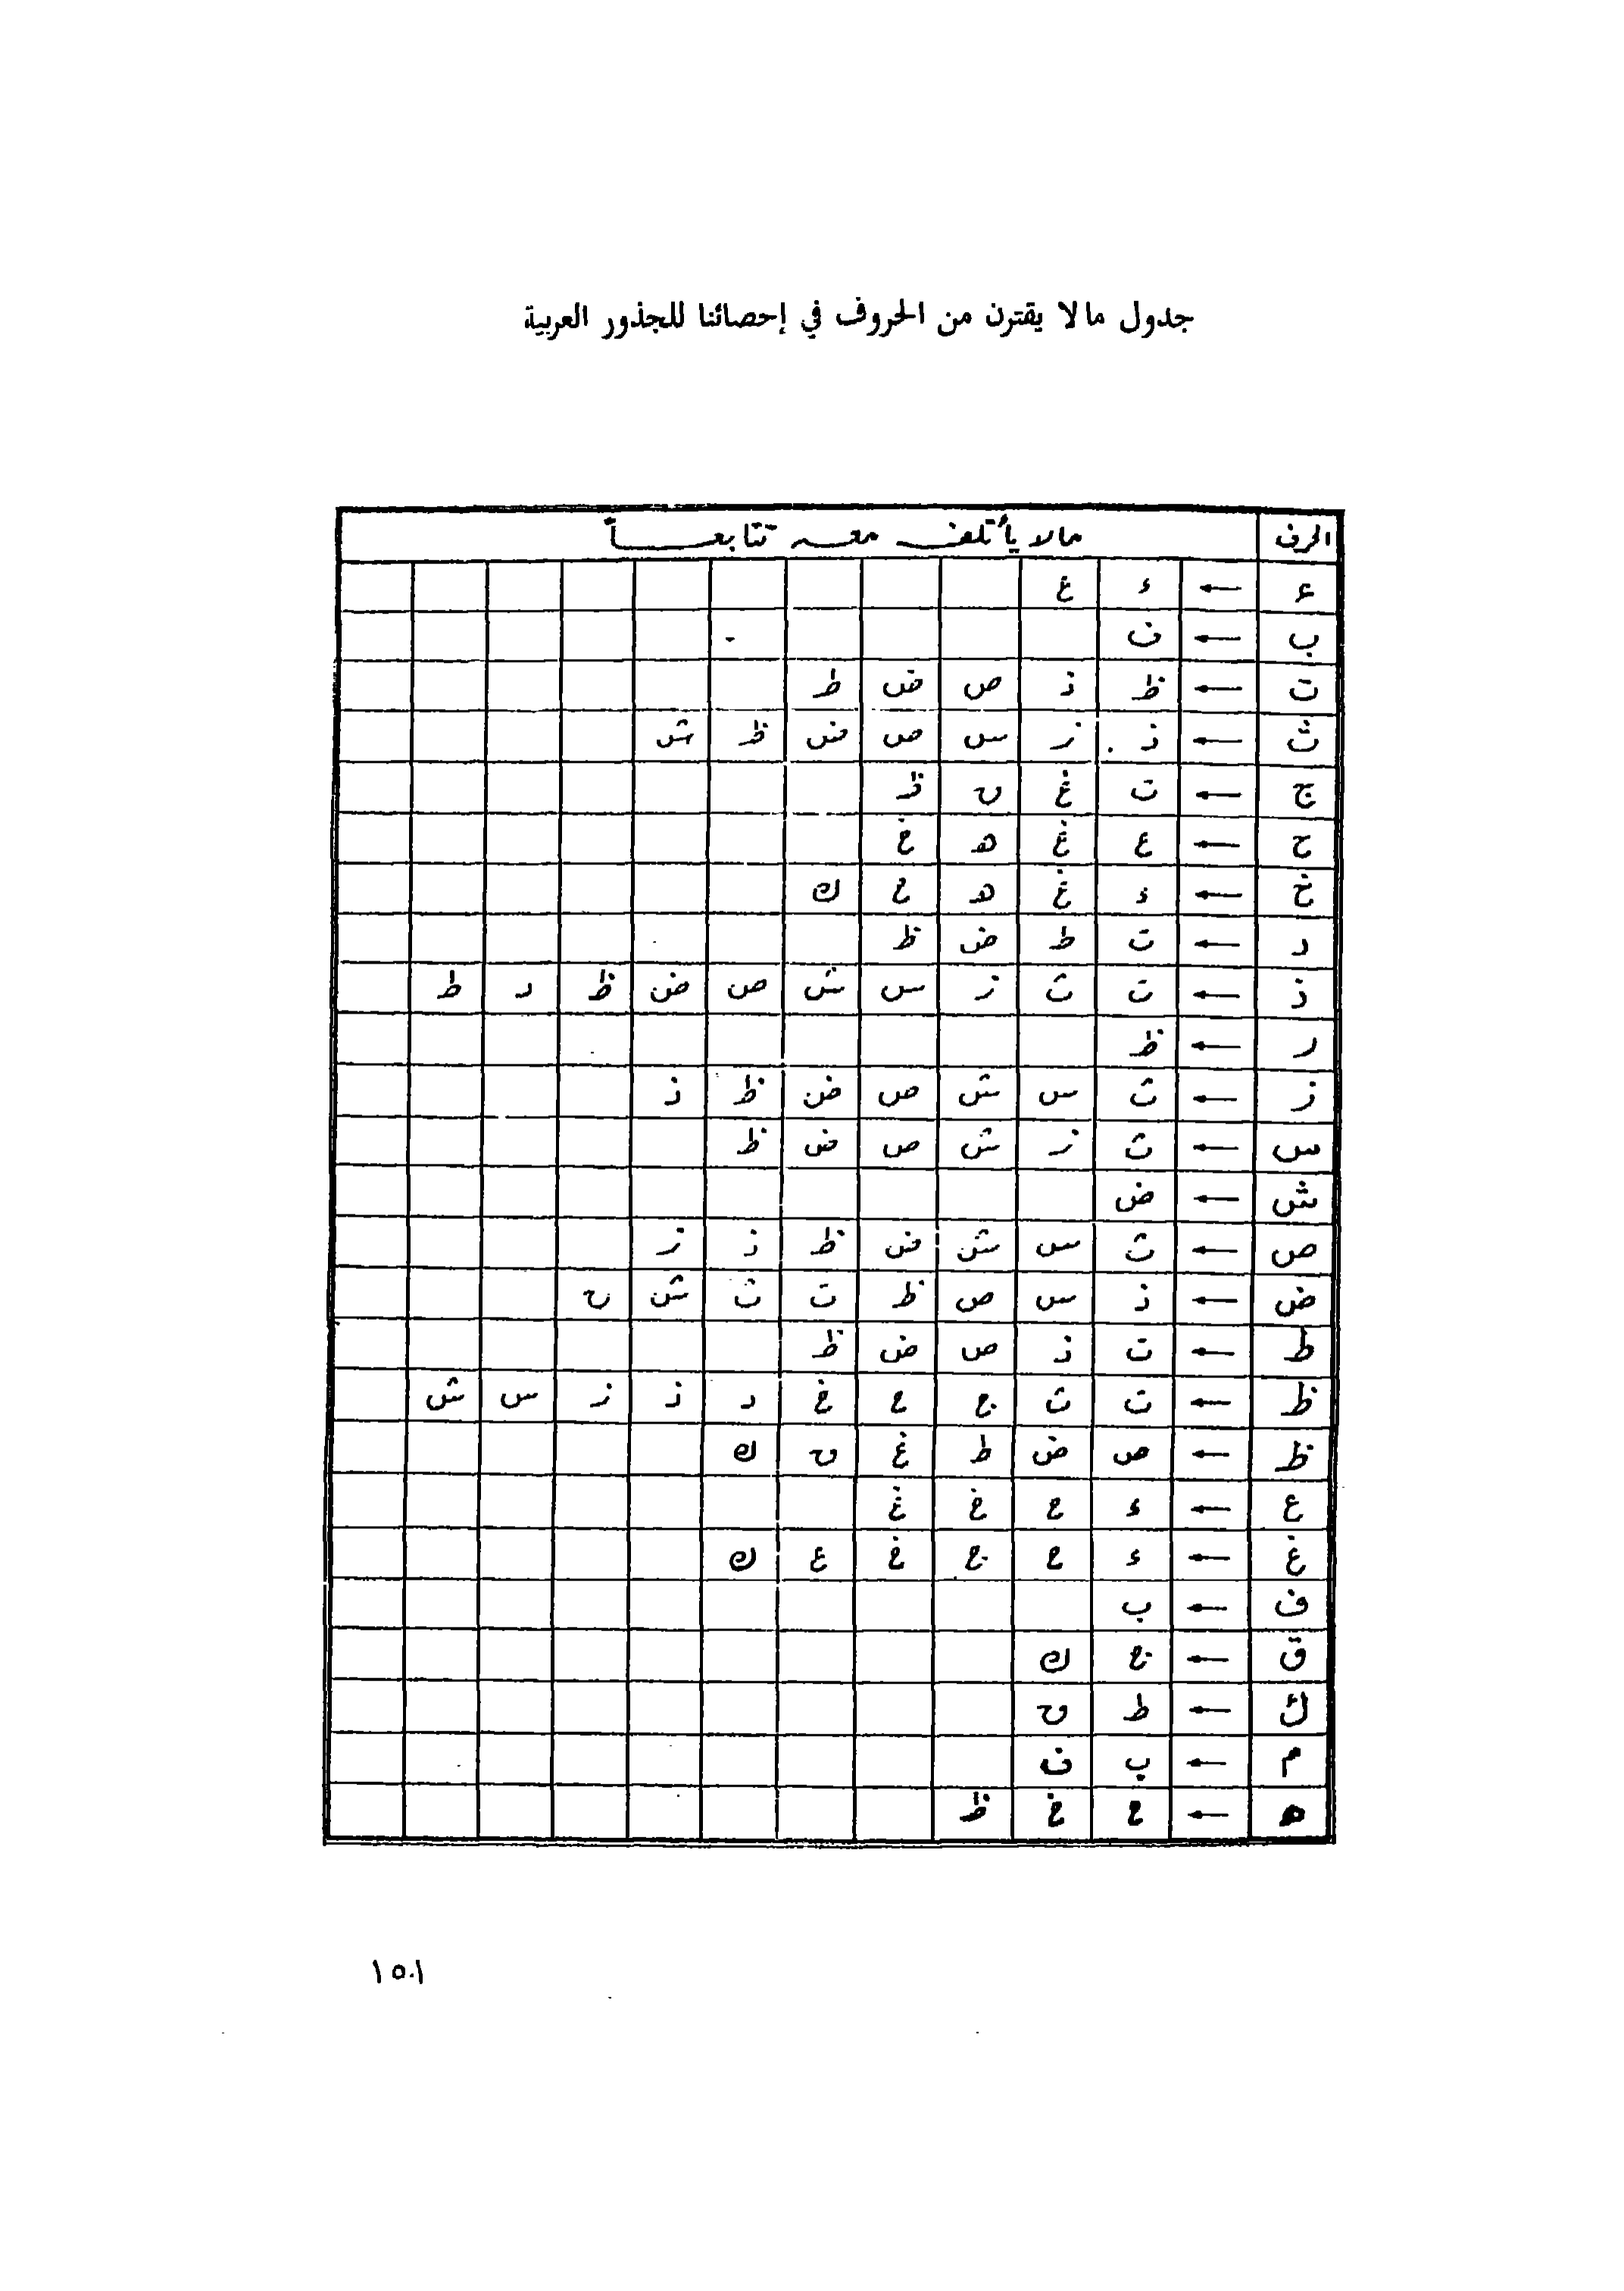 جدول مالا يقترن من الحروف في إحصائنا للجذور العربية
الحرف مالا يأتلف معه تتابعاً
ء ← ء ع
ب ← ف
ت ← ظ ذ ص ض ط
ث ← ذ ز س ص ض ظ ش
ج ← ت غ ق ظ
ح ← ع غ ه خ
خ ← ء غ ه ح ك
د ← ت ط ض ظ
ذ ← ت ث ز س ش ص ض ظ د ط
ر ← ظ
ز ← ث س ش ص ض ظ ذ
س ← ث ز ش ص ض ظ
ش ← ض
ص ← ث س ش ض ظ ذ ز
ض ← ذ س ص ظ ت ث ش ق
ط ← ت ذ ص ض ظ
ظ ← ت ث ج ح خ د ذ ز س ش
ظ ← ص ض ط غ ق ك
ع ← ء ح خ غ
غ ← ء ح ج خ ع ك
ف ← ب
ق ← ج ك
ك ← ط ق
م ← ب ف
ه ← ح خ ظ
١٥١